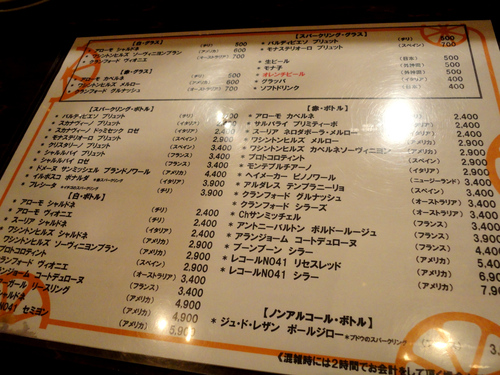 【白・グラス】
* アローモ シャルドネ (チリ) 500
* ワシントンヒルズ ソーヴィニヨンブラン (アメリカ) 600
* クランフォード ヴィオニエ (オーストラリア) 700
【赤・グラス】
* アローモ カベルネ (チリ) 500
* ワシントンヒルズ メルロー (アメリカ) 600
* クランフォード グルナッシュ (オーストラリア) 700
【スパークリング・グラス】
* バルディビエソ ブリュット (チリ) 500
* モナステリオーロ ブリュット (スペイン) 700
* 生ビール 500
* モナ子 500
* オレンヂビール 500
* グラッパ (イタリア) 400
* ソフトドリンク 400
【スパークリング・ボトル】
* バルディビエソ ブリュット (チリ)
* スカナヴィーノ ブリュット (イタリア)
* スカナヴィーノ ドゥミセック ロゼ (イタリア)
* モナステリオーロ ブリュット (スペイン) 2.900
* クリスタリーノ ブリュット (スペイン) 2.900
* シャルルバイイ ブリュット (フランス) 3.400
* シャルルバイイ ロゼ (フランス) 3.400
* ドメーヌ サンミッシェル ブランドノワール (アメリカ) 4.900
* イルボスコ ボナルダ (イタリア) 3.400
* フレシータ (チリ) 3.400
【白・ボトル】
* アローモ シャルドネ (チリ) 2.400
* アローモ ヴィオニエ (チリ) 2.400
* スーリア シャルドネ (イタリア) 2.400
ワシントンヒルズ シャルドネ (アメリカ) 2.900
ワシントンヒルズ ソーヴィニヨンブラン (アメリカ) 2.900
プロトコロティント (スペイン) 2.900
クランフォード ヴィオニエ (オーストラリア) 3.400
ランジョーム コートデューローヌ (フランス) 3.400
リースリング (アメリカ) 3.400
シャルドネ (アメリカ) 4.900
NO41 セミヨン (アメリカ) 4.900
5.900
【赤・ボトル】
* アローモ カベルネ (チリ) 2.400
* サルバライ プリミティーボ (イタリア) 2.400
* スーリア ネロダボーラ・メルロー (イタリア) 2.400
* ワシントンヒルズ メルロー (アメリカ) 2.900
* ワシントンヒルズ カベルネソーヴィニヨン (アメリカ) 2.900
* プロトコロティント (スペイン) 2.900
* モンテプルチアーノ (イタリア) 3.400
* ヘイメーカー ピノノワール (ニュージーランド) 3.400
* アルダレス テンプラニーリョ (スペイン) 3.400
* クランフォード グルナッシュ (オーストラリア) 3.400
* クランフォード シラーズ (オーストラリア) 3.400
* Chサンミッチェル (アメリカ) 3.400
* アントニーバルトン ボルドールージュ (フランス) 4.400
* アランジョーム コートデュローヌ (フランス) 4.400
* ブーンブーン シラー (アメリカ) 5.400
* レコールNO41 リセスレッド (アメリカ) 6.900
* レコールNO41 シラー (アメリカ) 7.900
【ノンアルコール・ボトル】
* ジュ・ド・レザン ポールジロー *ブドウのスパークリング
《混雑時には2時間でお会計をして頂く